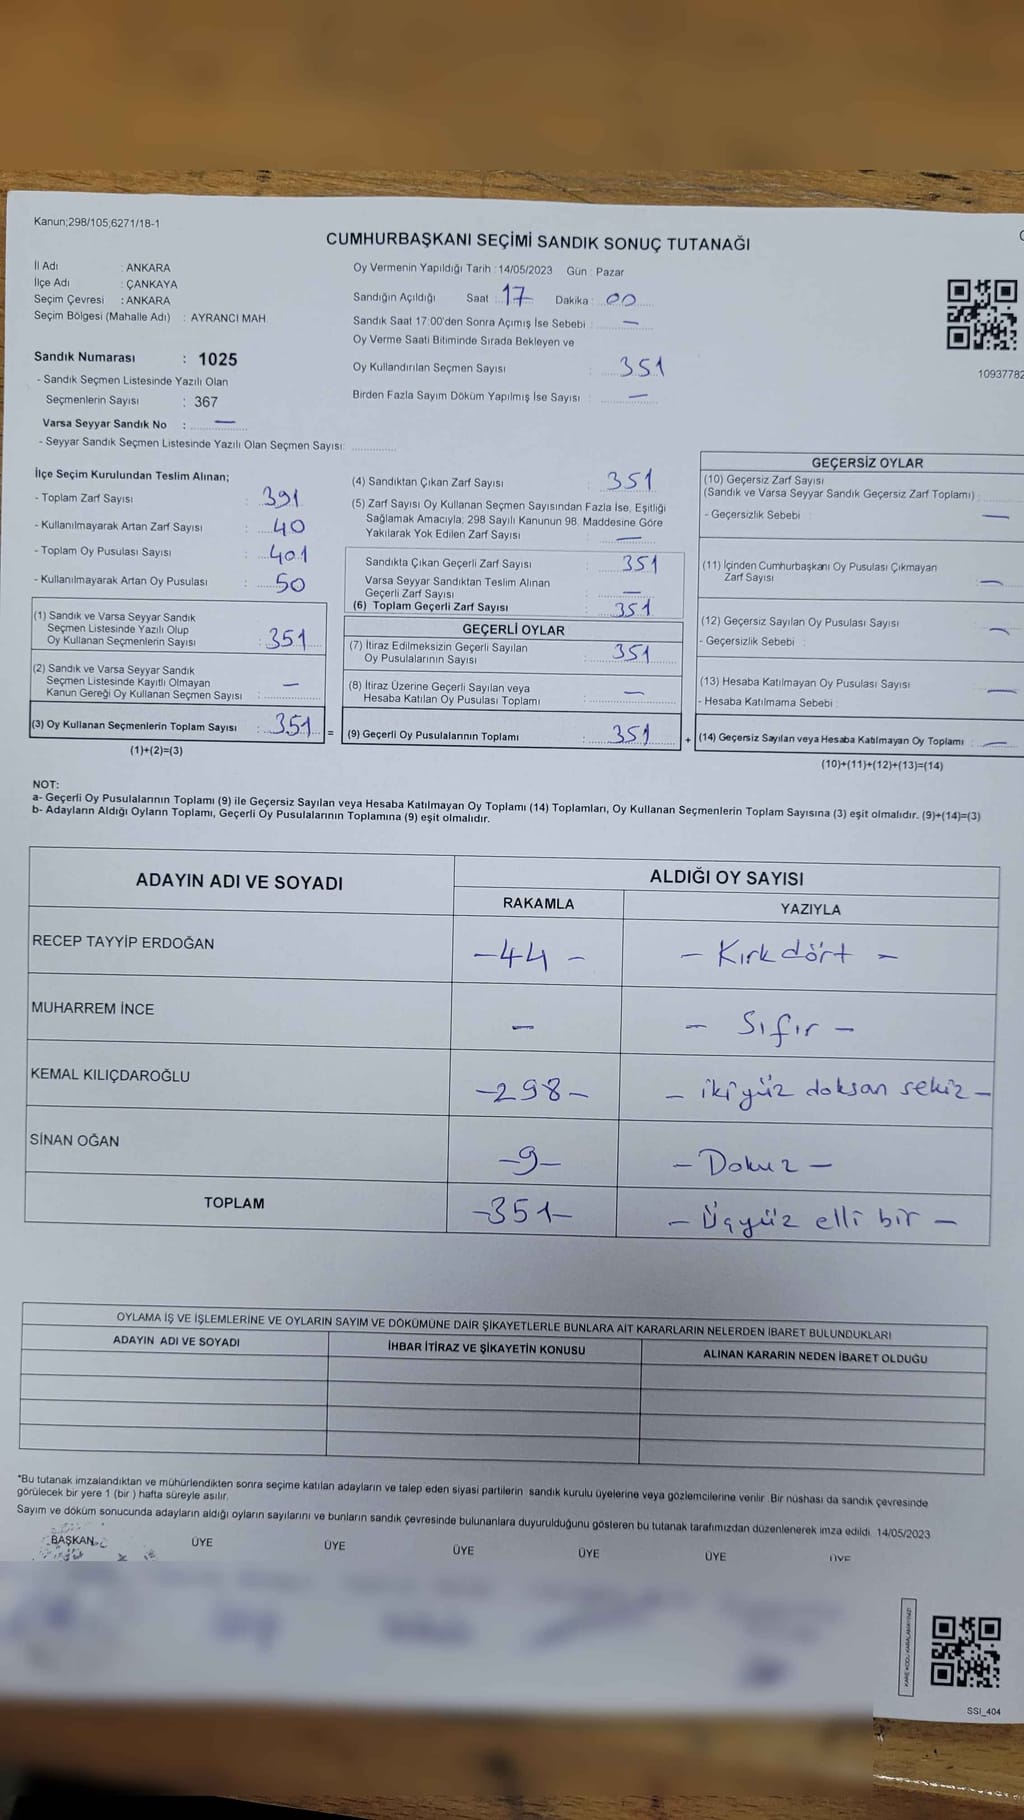 Kanun;298/105,6271/18-1
CUMHURBAŞKANI SEÇİMİ SANDIK SONUÇ TUTANAĞI
İl Adı : ANKARA
İlçe Adı : ÇANKAYA
Seçim Çevresi : ANKARA
Seçim Bölgesi (Mahalle Adı) : AYRANCI MAH.
Sandık Numarası : 1025
- Sandık Seçmen Listesinde Yazılı Olan
Seçmenlerin Sayısı : 367
Varsa Seyyar Sandık No : —
- Seyyar Sandık Seçmen Listesinde Yazılı Olan Seçmen Sayısı:
Oy Vermenin Yapıldığı Tarih : 14/05/2023 Gün : Pazar
Sandığın Açıldığı Saat : 17 Dakika : 00
Sandık Saat 17:00'den Sonra Açımış İse Sebebi : —
Oy Verme Saati Bitiminde Sırada Bekleyen ve
Oy Kullandırılan Seçmen Sayısı : 351
Birden Fazla Sayım Döküm Yapılmış İse Sayısı : —
10937782
İlçe Seçim Kurulundan Teslim Alınan;
- Toplam Zarf Sayısı : 391
- Kullanılmayarak Artan Zarf Sayısı : 40
- Toplam Oy Pusulası Sayısı : 401
- Kullanılmayarak Artan Oy Pusulası : 50
(1) Sandık ve Varsa Seyyar Sandık
Seçmen Listesinde Yazılı Olup
Oy Kullanan Seçmenlerin Sayısı : 351
(2) Sandık ve Varsa Seyyar Sandık
Seçmen Listesinde Kayıtlı Olmayan
Kanun Gereği Oy Kullanan Seçmen Sayısı : —
(3) Oy Kullanan Seçmenlerin Toplam Sayısı : 351 =
(1)+(2)=(3)
(4) Sandıktan Çıkan Zarf Sayısı : 351
(5) Zarf Sayısı Oy Kullanan Seçmen Sayısından Fazla İse, Eşitliği
Sağlamak Amacıyla; 298 Sayılı Kanunun 98. Maddesine Göre
Yakılarak Yok Edilen Zarf Sayısı : —
Sandıkta Çıkan Geçerli Zarf Sayısı : 351
Varsa Seyyar Sandıktan Teslim Alınan
Geçerli Zarf Sayısı : —
(6) Toplam Geçerli Zarf Sayısı : 351
GEÇERLİ OYLAR
(7) İtiraz Edilmeksizin Geçerli Sayılan
Oy Pusulalarının Sayısı : 351
(8) İtiraz Üzerine Geçerli Sayılan veya
Hesaba Katılan Oy Pusulası Toplamı : —
(9) Geçerli Oy Pusulalarının Toplamı : 351 +
GEÇERSİZ OYLAR
(10) Geçersiz Zarf Sayısı
(Sandık ve Varsa Seyyar Sandık Geçersiz Zarf Toplamı) :
- Geçersizlik Sebebi : —
(11) İçinden Cumhurbaşkanı Oy Pusulası Çıkmayan
Zarf Sayısı : —
(12) Geçersiz Sayılan Oy Pusulası Sayısı : —
- Geçersizlik Sebebi :
(13) Hesaba Katılmayan Oy Pusulası Sayısı : —
- Hesaba Katılmama Sebebi :
(14) Geçersiz Sayılan veya Hesaba Katılmayan Oy Toplamı : —
(10)+(11)+(12)+(13)=(14)
NOT:
a- Geçerli Oy Pusulalarının Toplamı (9) ile Geçersiz Sayılan veya Hesaba Katılmayan Oy Toplamı (14) Toplamları, Oy Kullanan Seçmenlerin Toplam Sayısına (3) eşit olmalıdır. (9)+(14)=(3)
b- Adayların Aldığı Oyların Toplamı, Geçerli Oy Pusulalarının Toplamına (9) eşit olmalıdır.
ADAYIN ADI VE SOYADI ALDIĞI OY SAYISI
RAKAMLA YAZIYLA
RECEP TAYYİP ERDOĞAN -44- - Kırk dört -
MUHARREM İNCE - - Sıfır -
KEMAL KILIÇDAROĞLU -298- - ikiyüz doksan sekiz -
SİNAN OĞAN -9- - Dokuz -
TOPLAM -351- - Üçyüz elli bir -
OYLAMA İŞ VE İŞLEMLERİNE VE OYLARIN SAYIM VE DÖKÜMÜNE DAİR ŞİKAYETLERLE BUNLARA AİT KARARLARIN NELERDEN İBARET BULUNDUKLARI
ADAYIN ADI VE SOYADI İHBAR İTİRAZ VE ŞİKAYETİN KONUSU ALINAN KARARIN NEDEN İBARET OLDUĞU
*Bu tutanak imzalandıktan ve mühürlendikten sonra seçime katılan adayların ve talep eden siyasi partilerin sandık kurulu üyelerine veya gözlemcilerine verilir. Bir nüshası da sandık çevresinde
görülecek bir yere 1 (bir ) hafta süreyle asılır.
Sayım ve döküm sonucunda adayların aldığı oyların sayılarını ve bunların sandık çevresinde bulunanlara duyurulduğunu gösteren bu tutanak tarafımızdan düzenlenerek imza edildi. 14/05/2023
BAŞKAN ÜYE ÜYE ÜYE ÜYE ÜYE ÜYE
SSI_404